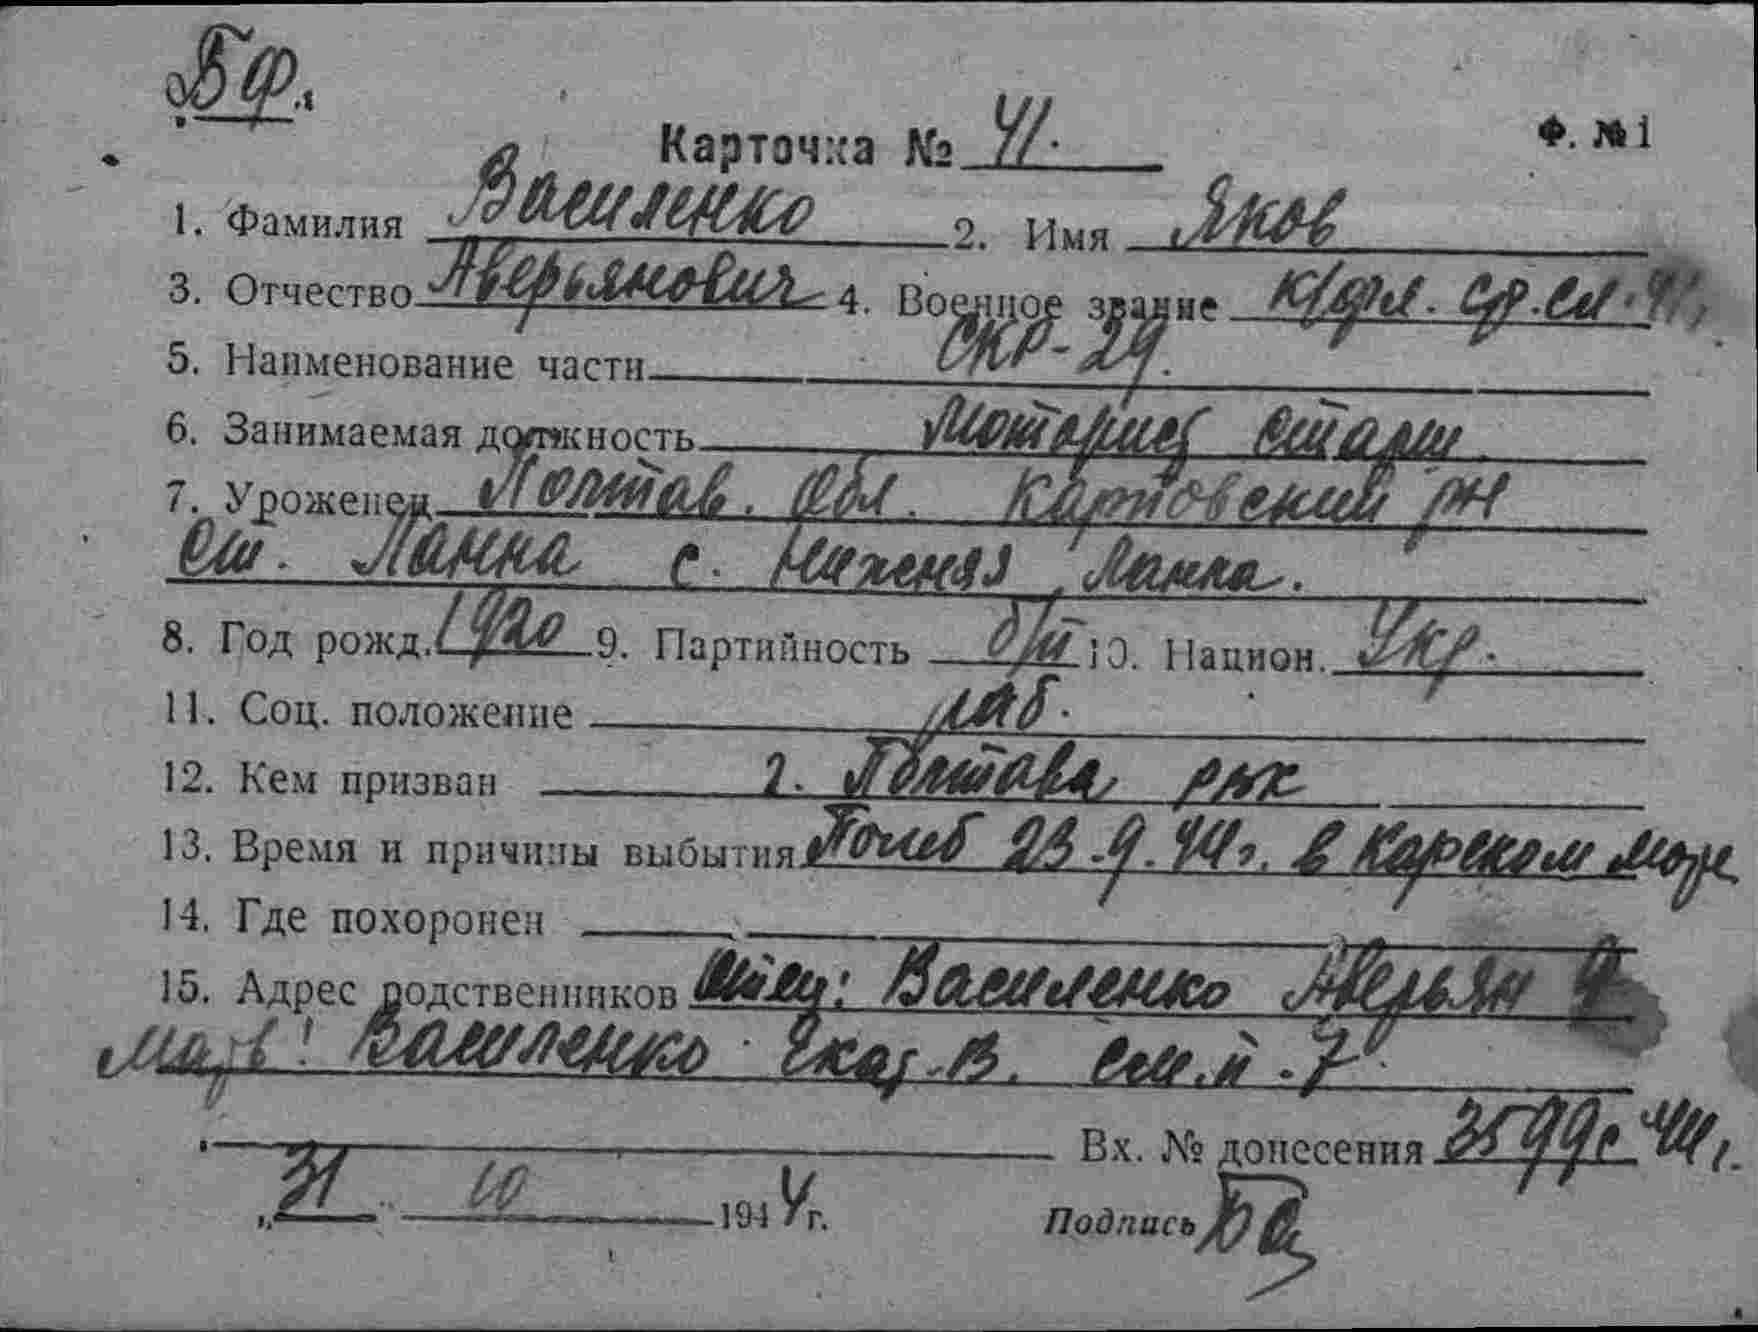 БФ.
Карточка № 41. Ф. №1
1. Фамилия Василенко 2. Имя Яков
3. Отчество Аверьянович 4. Военное звание к/фл. ср. сл. 41,
5. Наименование части СКР-29.
6. Занимаемая должность Моторист старш.
7. Уроженец Полтав. Обл. Карловский рн
ст. Ланна с. Нижняя Ланна.
8. Год рожд. 1920 9. Партийность б/п 10. Национ. Укр.
11. Соц. положение раб.
12. Кем призван г. Полтава рвк
13. Время и причины выбытия Погиб 23.9.44г. в Карском море
14. Где похоронен
15. Адрес родственников Отец: Василенко Аверьян Я
Мать: Василенко Екат. В. см. п. 7
Вх. № донесения 3599с 44г.
„31" 10 1944г. Подпись